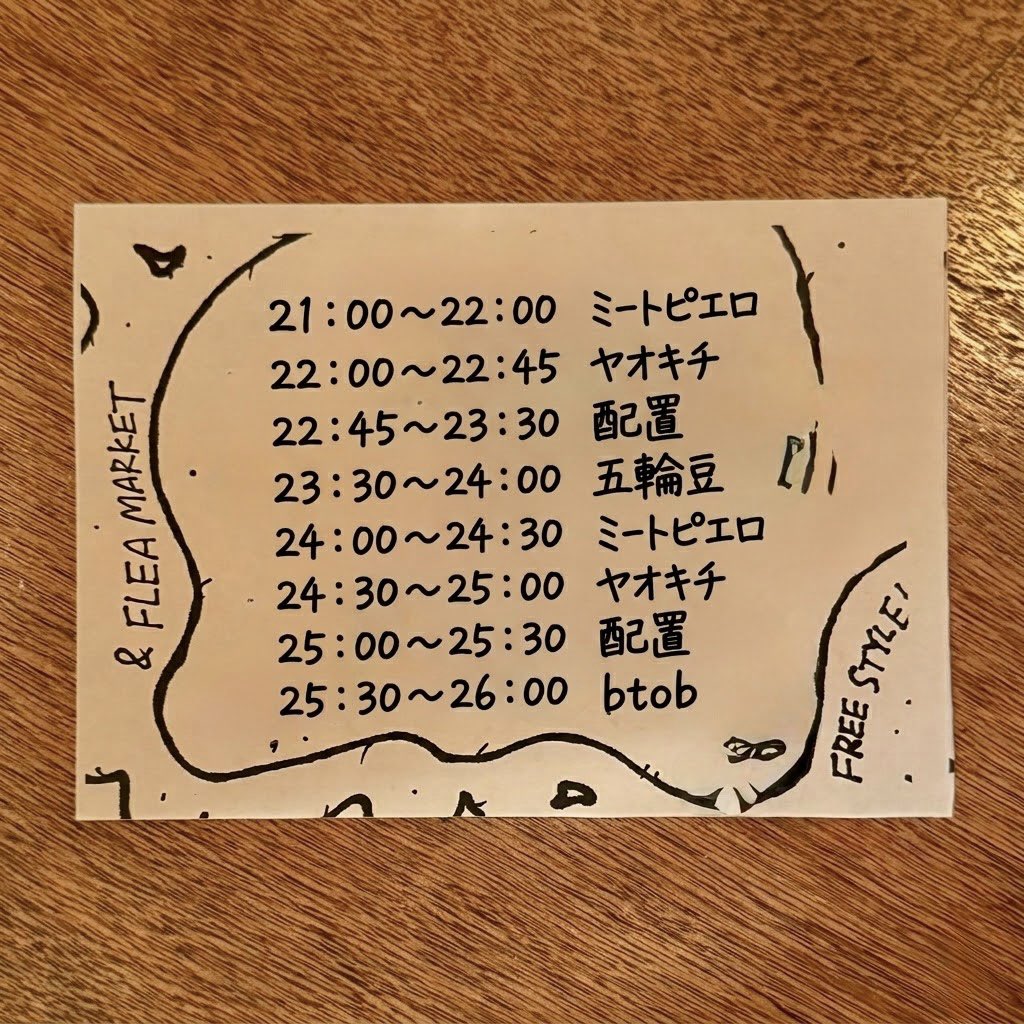 21:00～22:00 ミートピエロ
22:00～22:45 ヤオキチ
22:45～23:30 配置
23:30～24:00 五輪豆
24:00～24:30 ミートピエロ
24:30～25:00 ヤオキチ
25:00～25:30 配置
25:30～26:00 btob
& FLEA MARKET
FREE STYLE!